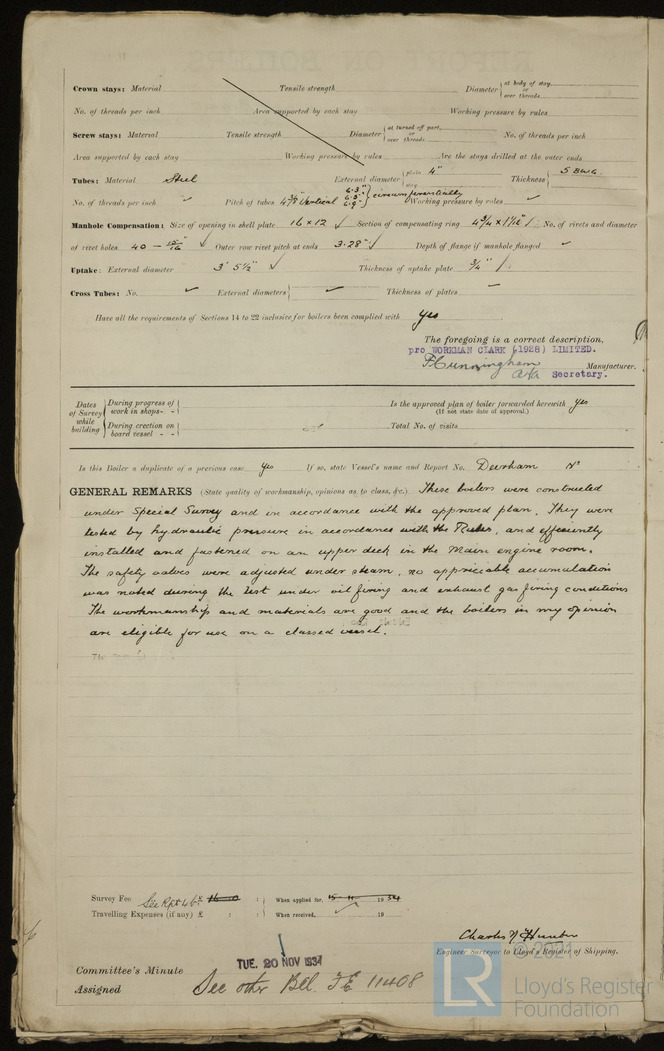 Crown stays: Material Tensile strength Diameter { at body of stay, or over threads
No. of threads per inch Area supported by each stay Working pressure by rules
Screw stays: Material Tensile strength Diameter { at turned off part, or over threads No. of threads per inch
Area supported by each stay Working pressure by rules Are the stays drilled at the outer ends
Tubes: Material Steel External diameter { plain 4" stay Thickness { 5 BWG.
No. of threads per inch ✓ Pitch of tubes Vertical 6.3" 6.5" 6.9" } circumferentially Working pressure by rules ✓
Manhole Compensation: Size of opening in shell plate 16 x 12 ✓ Section of compensating ring 4¾ x 1½" ✓. No. of rivets and diameter
of rivet holes 40 — 15/16" ✓ Outer row rivet pitch at ends 3.28" ✓ Depth of flange if manhole flanged ✓
Uptake: External diameter 3' 5½" ✓ Thickness of uptake plate ¾" ✓.
Cross Tubes: No. ✓ External diameters { ✓ Thickness of plates ✓
Have all the requirements of Sections 14 to 22 inclusive for boilers been complied with yes
The foregoing is a correct description,
pro WORKMAN CLARK (1928) LIMITED.
Cunningham Manufacturer.
Secretary.
Dates of Survey while building { During progress of work in shops - - Is the approved plan of boiler forwarded herewith yes
(If not state date of approval.)
During erection on board vessel - - Total No. of visits
Is this Boiler a duplicate of a previous case yes If so, state Vessel's name and Report No. Deerham No
GENERAL REMARKS (State quality of workmanship, opinions as to class, &c.) These boilers were constructed
under Special Survey and in accordance with the approved plan. They were
tested by hydraulic pressure in accordance with the Rules, and efficiently
installed and fastened on an upper deck in the Main engine room.
The safety valves were adjusted under steam, no appreciable accumulation
was noted during the test under oil firing and exhaust gas firing conditions
The workmanship and materials are good and the boilers in my opinion
are eligible for use on a classed vessel.
Survey Fee See Rpt 4b : : When applied for, 19 34
Travelling Expenses (if any) £ : : When received, 19
Charles N Hunter
Engineer Surveyor to Lloyd's Register of Shipping.
TUE. 20 NOV 1934
Committee's Minute
Assigned See other Bel. F.E. 11408
LR © 2021
Lloyd's Register
Foundation